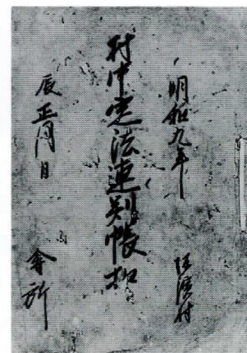 明和九年
村
村中定法連判帳扣
辰正月日
會所